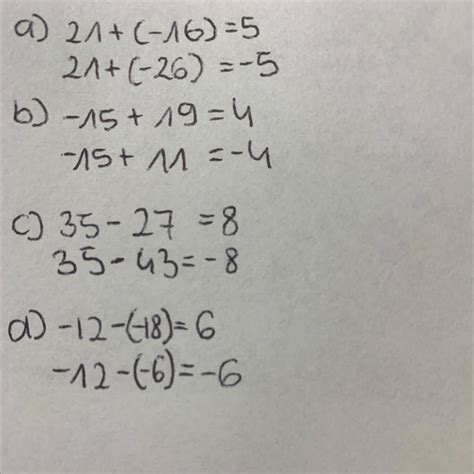 a) 21+(-16)=5
21+(-26)=-5
b) -15+19=4
-15+11=-4
c) 35-27=8
35-43=-8
d) -12-(-18)=6
-12-(-6)=-6